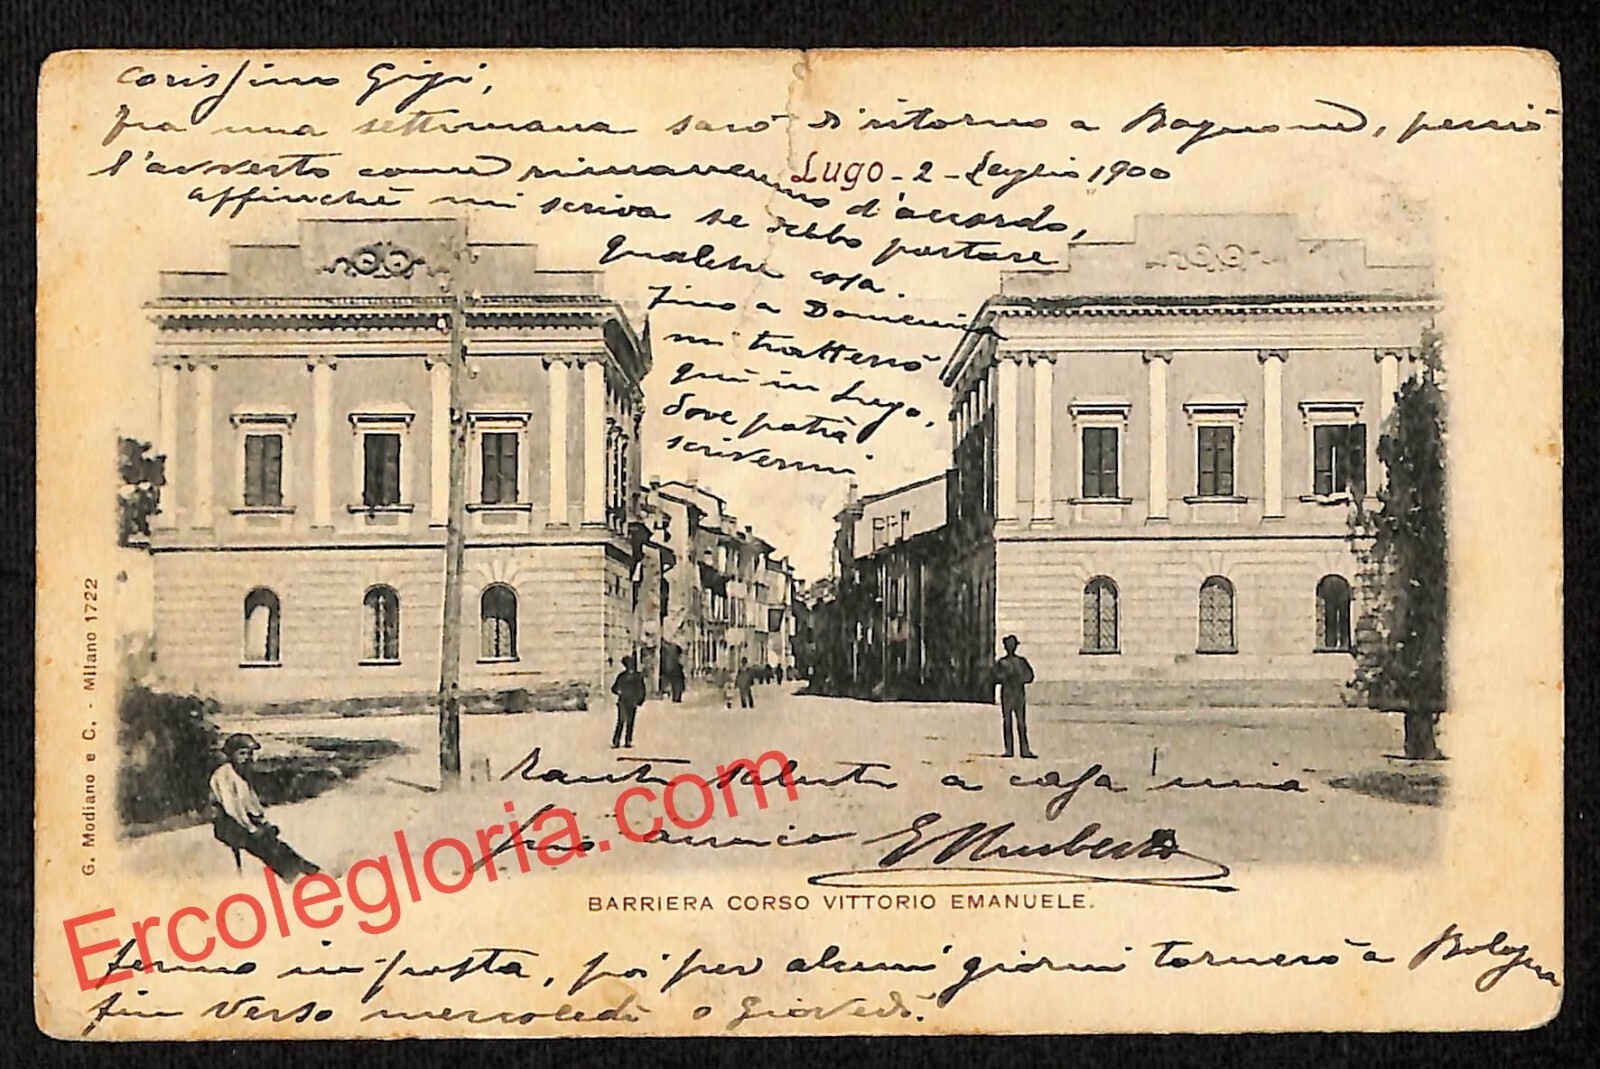 carissimo Gigi,
fra una settimana sarò di ritorno a Bagnone, perciò
l'avverto come rimanemmo d'accordo,
Lugo - 2 - Luglio 1900
affinchè mi scriva se debbo portare
qualche cosa.
fino a Domenica
mi tratterrò
qui in Lugo,
dove potrà
scrivermi
G. Modiano e C. - Milano 1722
tanti saluti a casa
suo amico
BARRIERA CORSO VITTORIO EMANUELE.
Ercolegloria.com
fermo in posta, poi per alcuni giorni tornerò a Bologna
fin verso mercoledì o Giovedì.